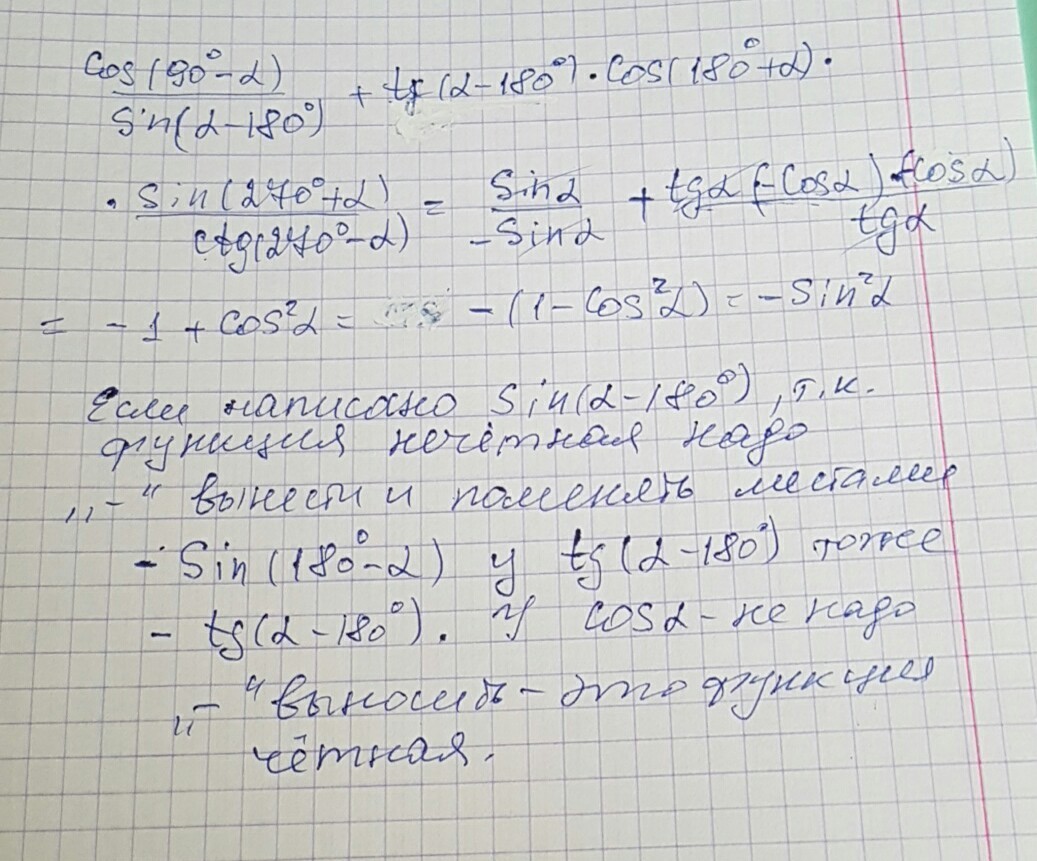 cos(90°-α)/sin(α-180°) + tg(α-180°)·cos(180°+α)·
· sin(270°+α)/ctg(270°-α) = sinα/-sinα + tgα(-cosα)·(-cosα)/tgα
= -1 + cos²α = -(1-cos²α) = -sin²α
Если написано sin(α-180°), т.к.
функция нечётная надо
„-“ вынести и поменять местами
- sin(180°-α) у tg(α-180°) тоже
- tg(α-180°). У cosα - не надо
„-“ выносить - это функция
чётная.